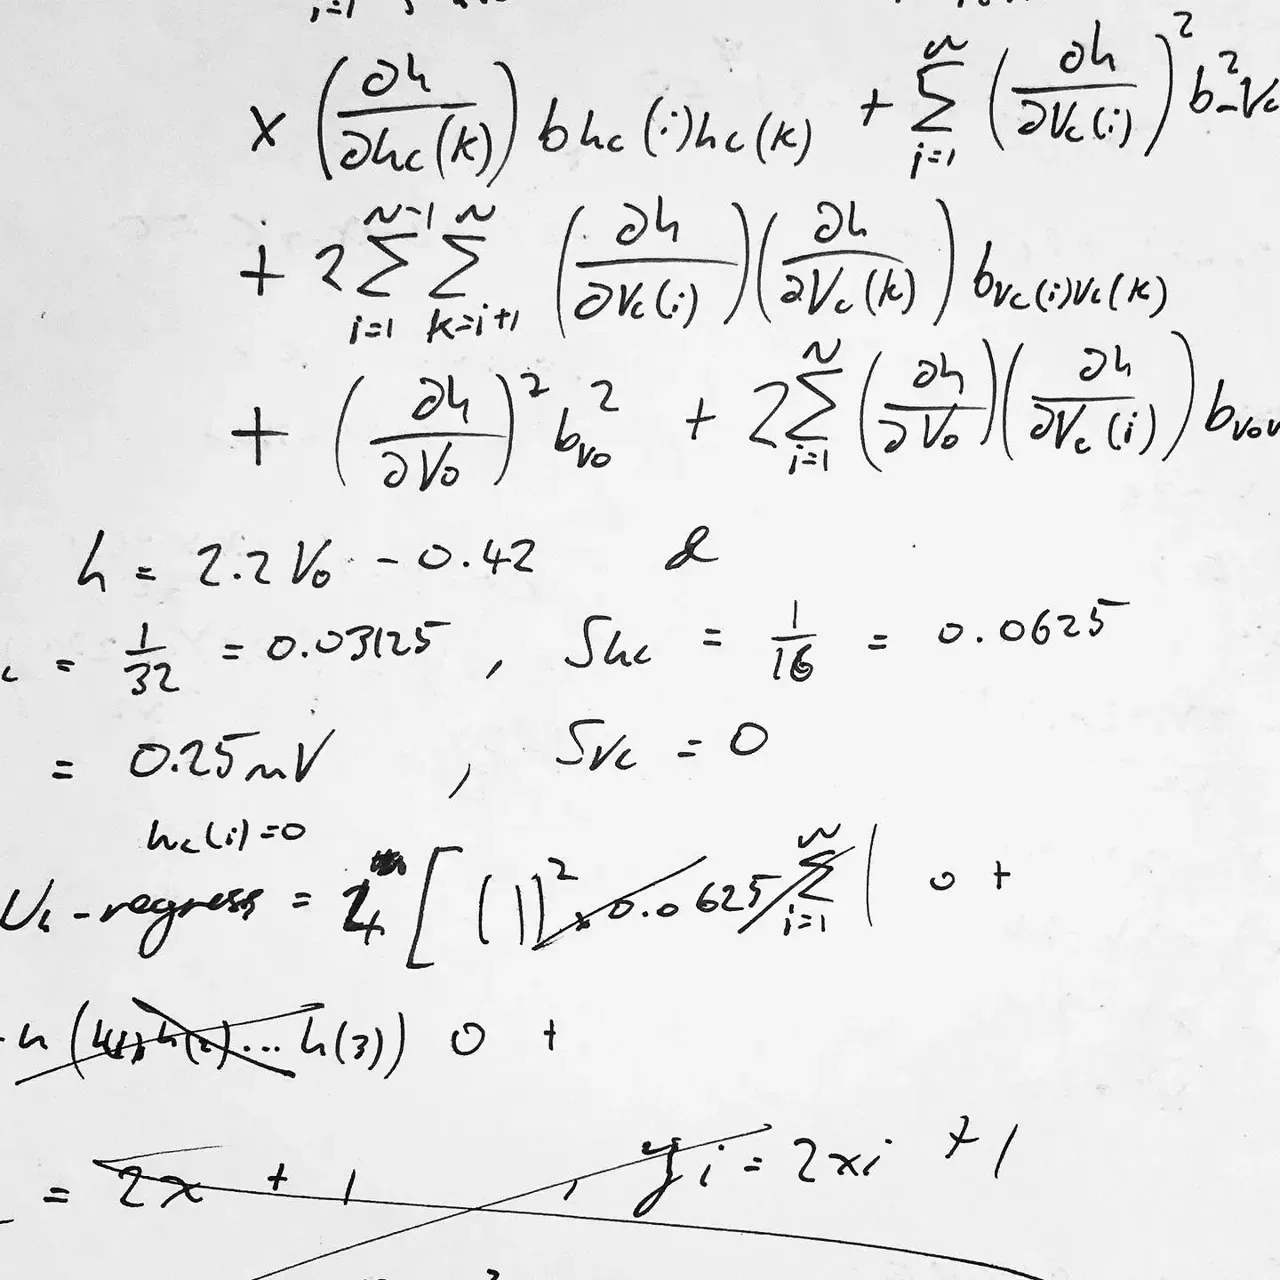 i=1
× (∂h/∂hc(k)) bhc(i)hc(k) + Σ_{i=1}^{N} (∂h/∂Vc(i))² b²Vc
+ 2 Σ_{i=1}^{N-1} Σ_{k=i+1}^{N} (∂h/∂Vc(i)) (∂h/∂Vc(k)) b_{Vc(i)Vc(k)}
+ (∂h/∂V₀)² b²_{V₀} + 2 Σ_{i=1}^{N} (∂h/∂V₀) (∂h/∂Vc(i)) b_{V₀V
h = 2.2 V₀ - 0.42 &
c = 1/32 = 0.03125 , Shc = 1/16 = 0.0625
= 0.25mV , SVc = 0
hc(i)=0
Uh-regress = 4 [ ( )² × 0.0625 Σ_{i=1}^{N} ( 0 +
h (h(1) h(2) ... h(3)) 0 +
= 2x + 1 , yi = 2xi + 1
2